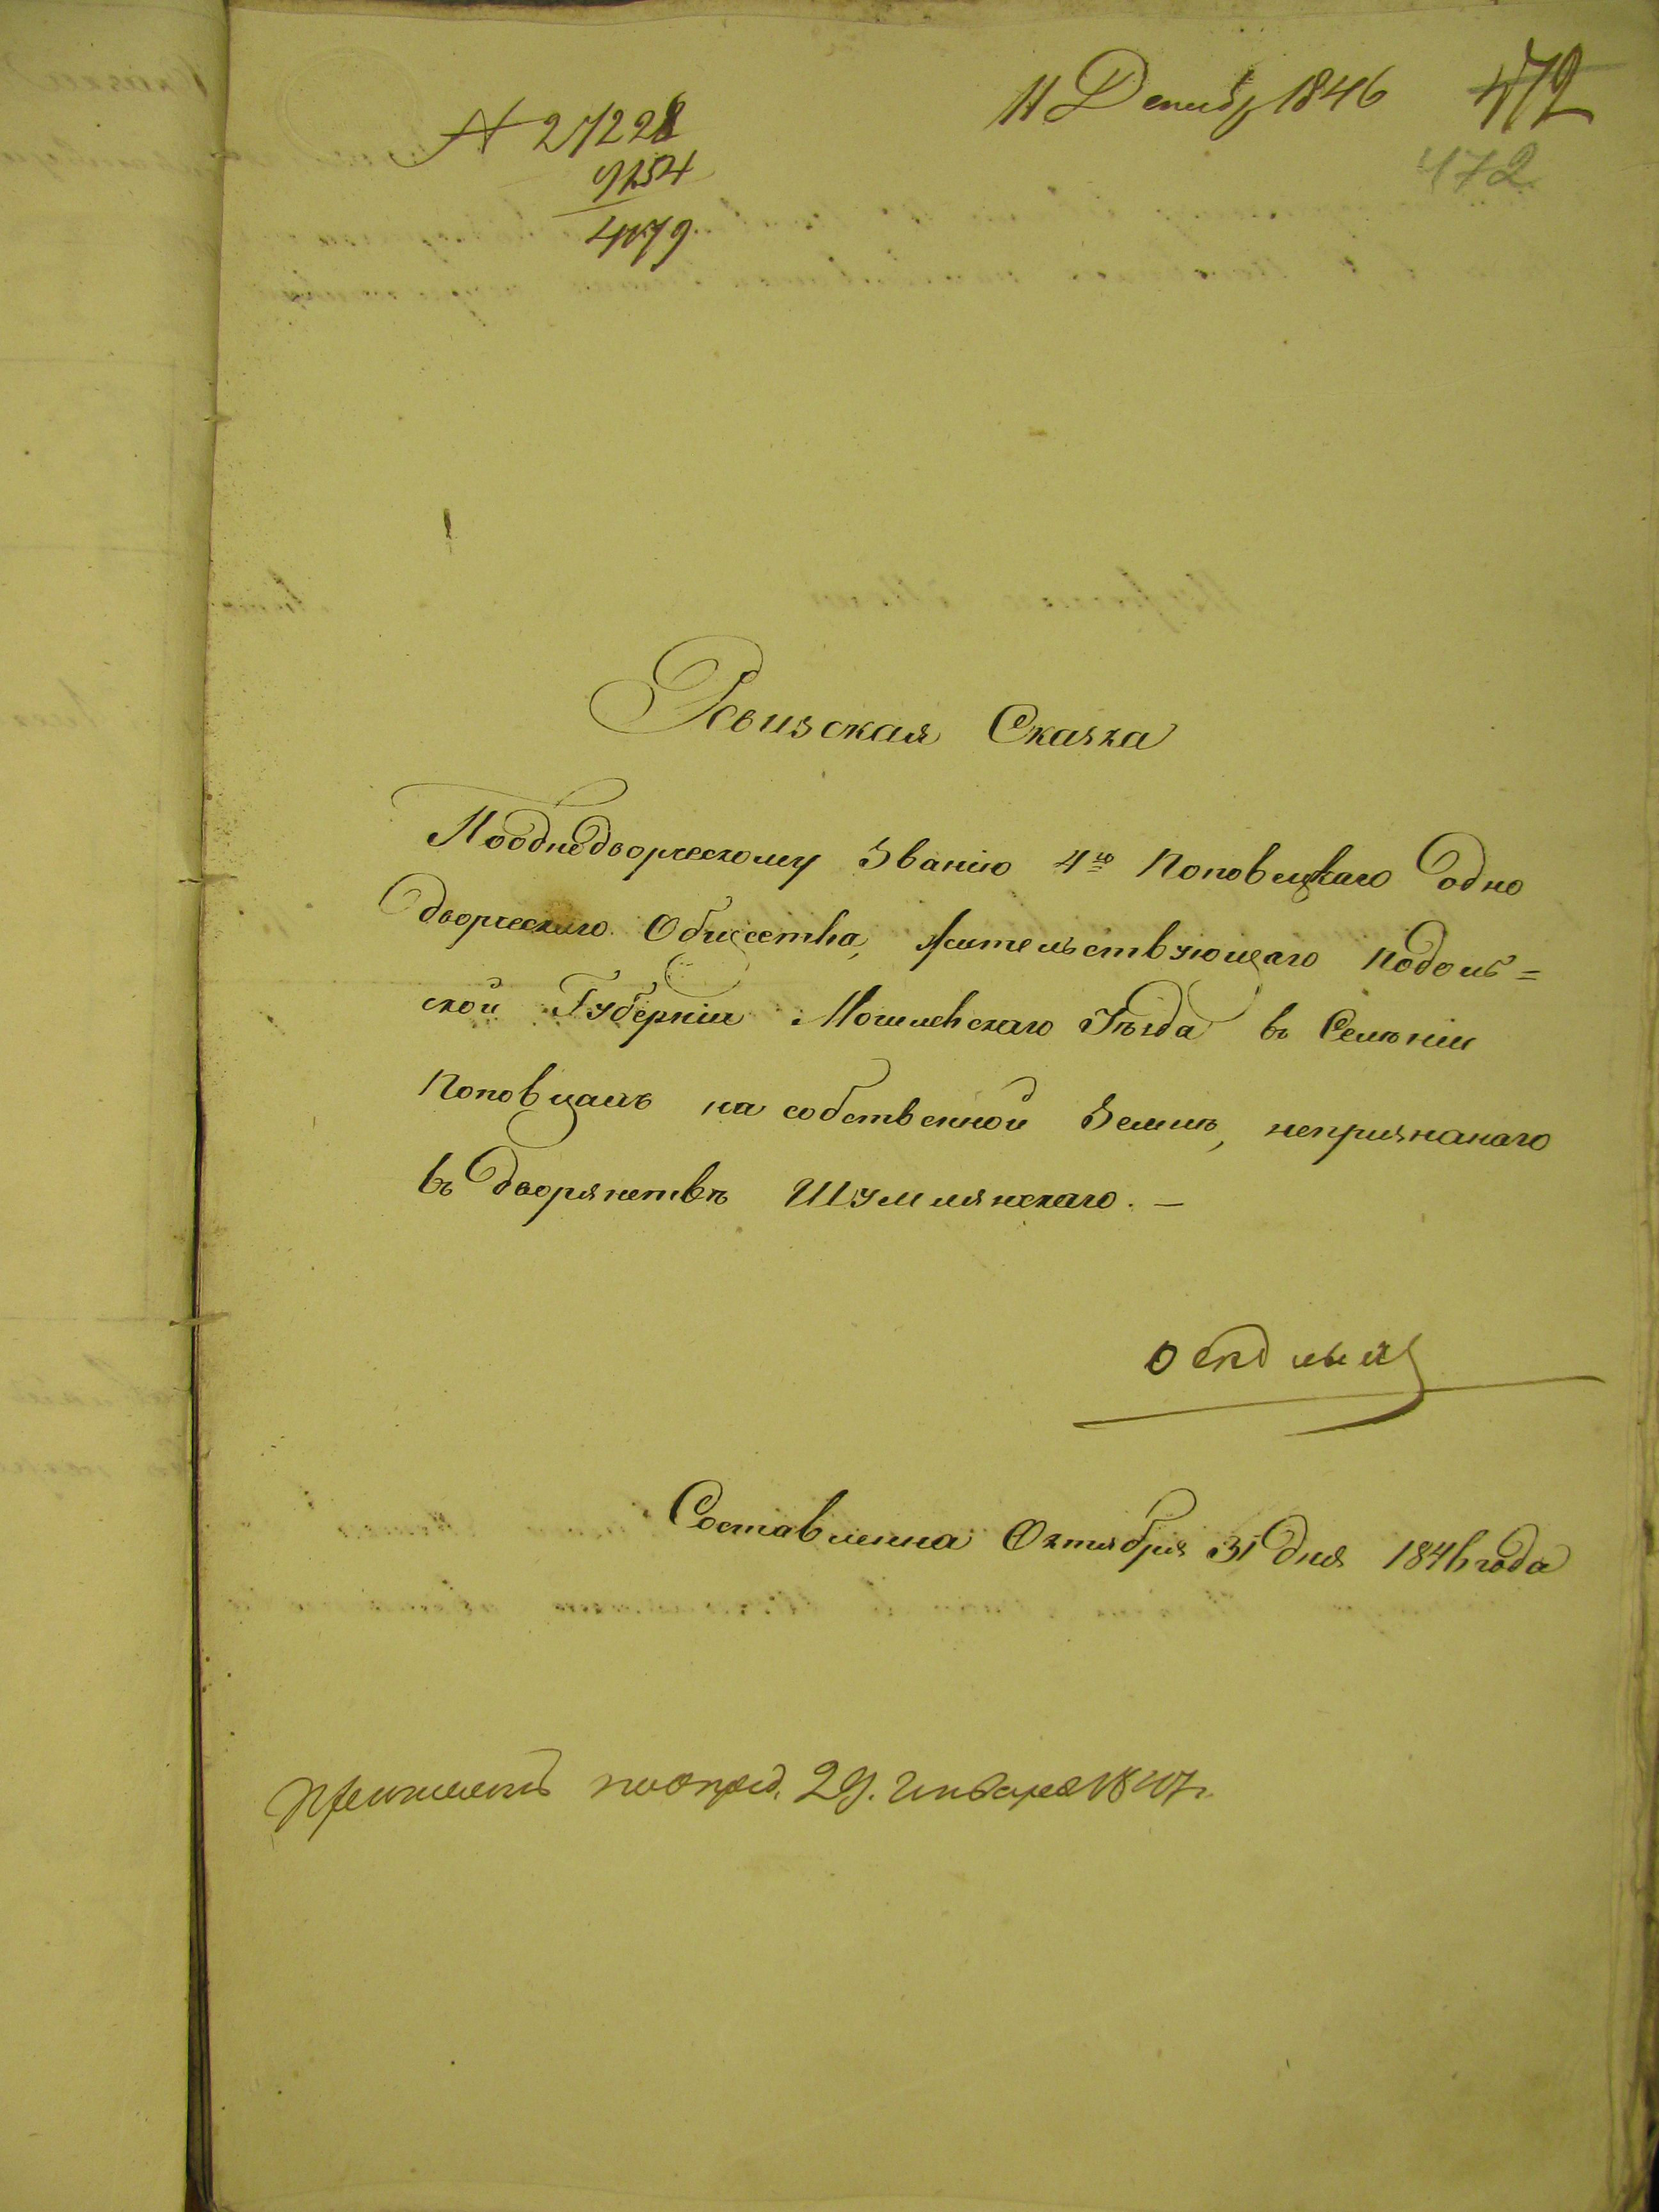 11 Декабр 1846
472
472.
№ 27228
9154
4079.
Ревизская Сказка
По однодворческому Званію 4го Поповецкаго одно
дворческаго Общества, жительствующаго Подоль=
ской Губерніи Могилевскаго Уѣзда въ Селѣніи
Поповцахъ на собственной Землѣ, непризнанаго
въ дворянствѣ Шумлянскаго. —
осѣдлый
Составленна Октября 31 дня 1846 года
по опред. 29. Января 1847 г.